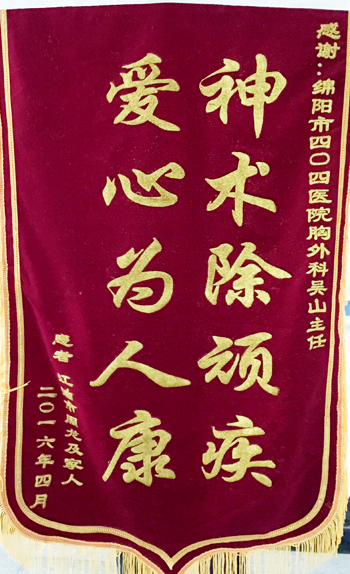 感谢：绵阳市四〇四医院胸外科吴山主任
神术除顽疾
爱心为人康
患者 江油市周光及家人
二〇一六年四月